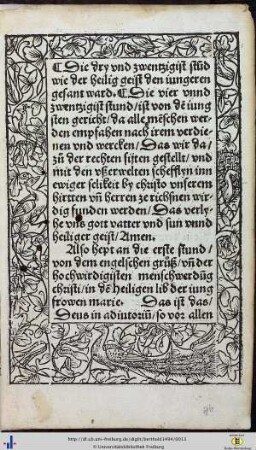 ¶ Die dry vnd zwentzigist stūd
wie der heilig geist den iungeren
gesant ward. ¶ Die vier vnnd
zwentzigist stund/ ist von dē iung
sten gericht/ da alle mēschen wer
den empfahen nach irem verdie-
nen vnd wercken/ Das wir da/
zů der rechten sijten gestelt/ vnd
mit den vßerwelten schefflyn inn
ewiger selikeit by christo vnserem
hirtten vñ herren ze richsnen wir-
dig funden werden/ Das verly-
he vns gott vatter vnd sun vnnd
heiliger geist/ Amen.
Also hept an die erste stund/
von dem engelschen grůß/ vñ der
hochwirdigisten menschwerdūg
christi/ in dē heiligen lib der iung
frowen marie. Das ist das/
Deus in adiutoriū/ so vor allen
http://dl.ub.uni-freiburg.de/diglit/berthold1494/0011
© Universitätsbibliothek Freiburg